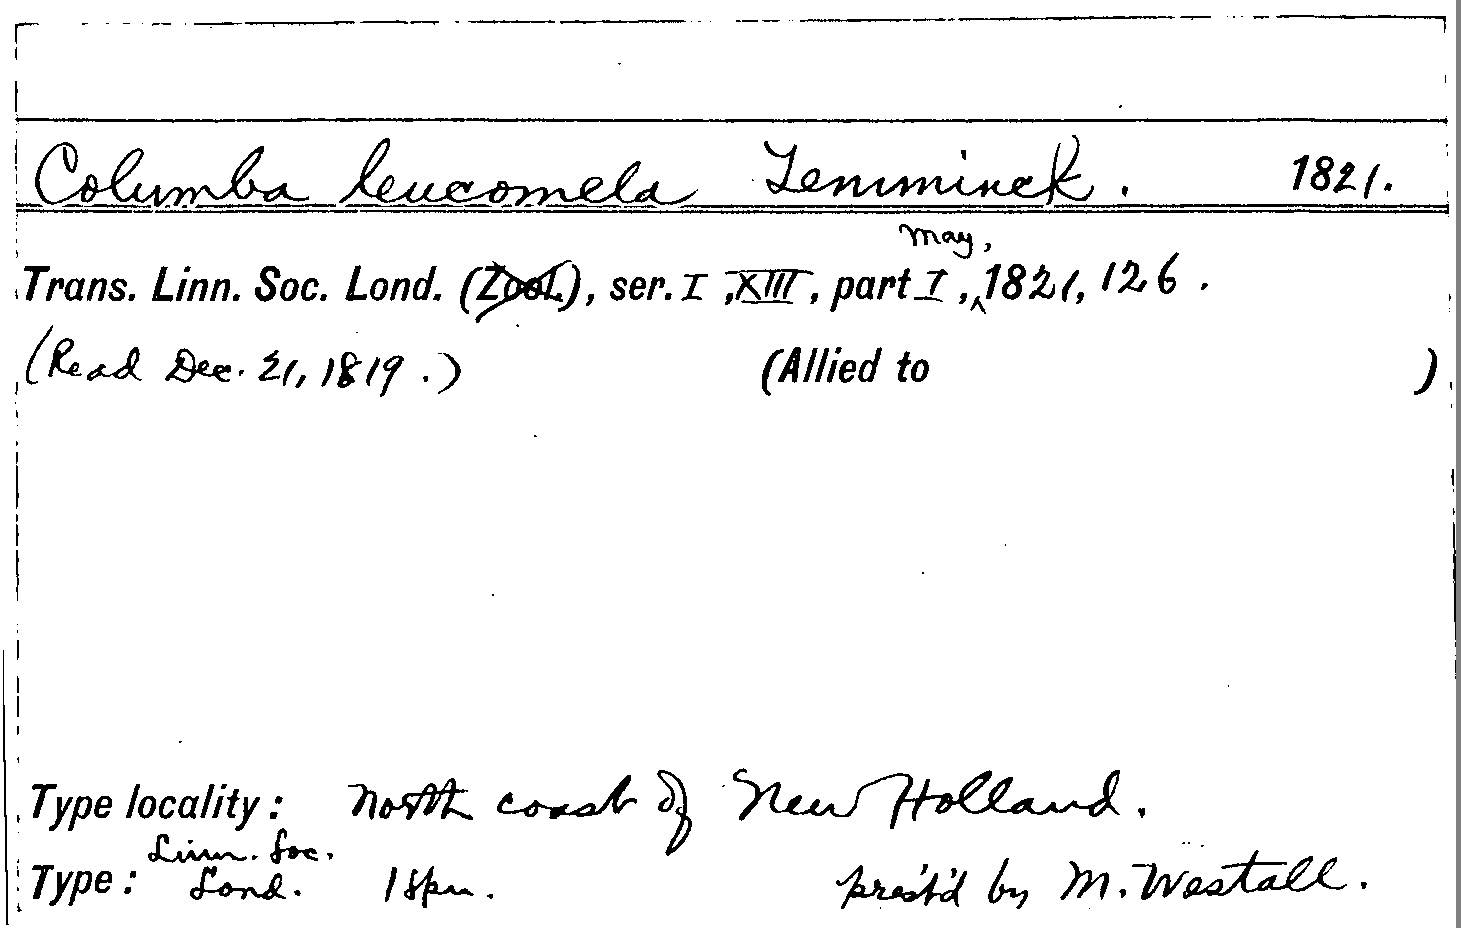 Columba leucomela Temminck. 1821.
May,
Trans. Linn. Soc. Lond. (Zool.), ser. I, XIII, part I, ^ 1821, 126.
(Read Dec. 21, 1819.) (Allied to )
Type locality: North coast of New Holland.
Linn. Soc.
Type: Lond. 1 spm. pres't'd by M. Westall.